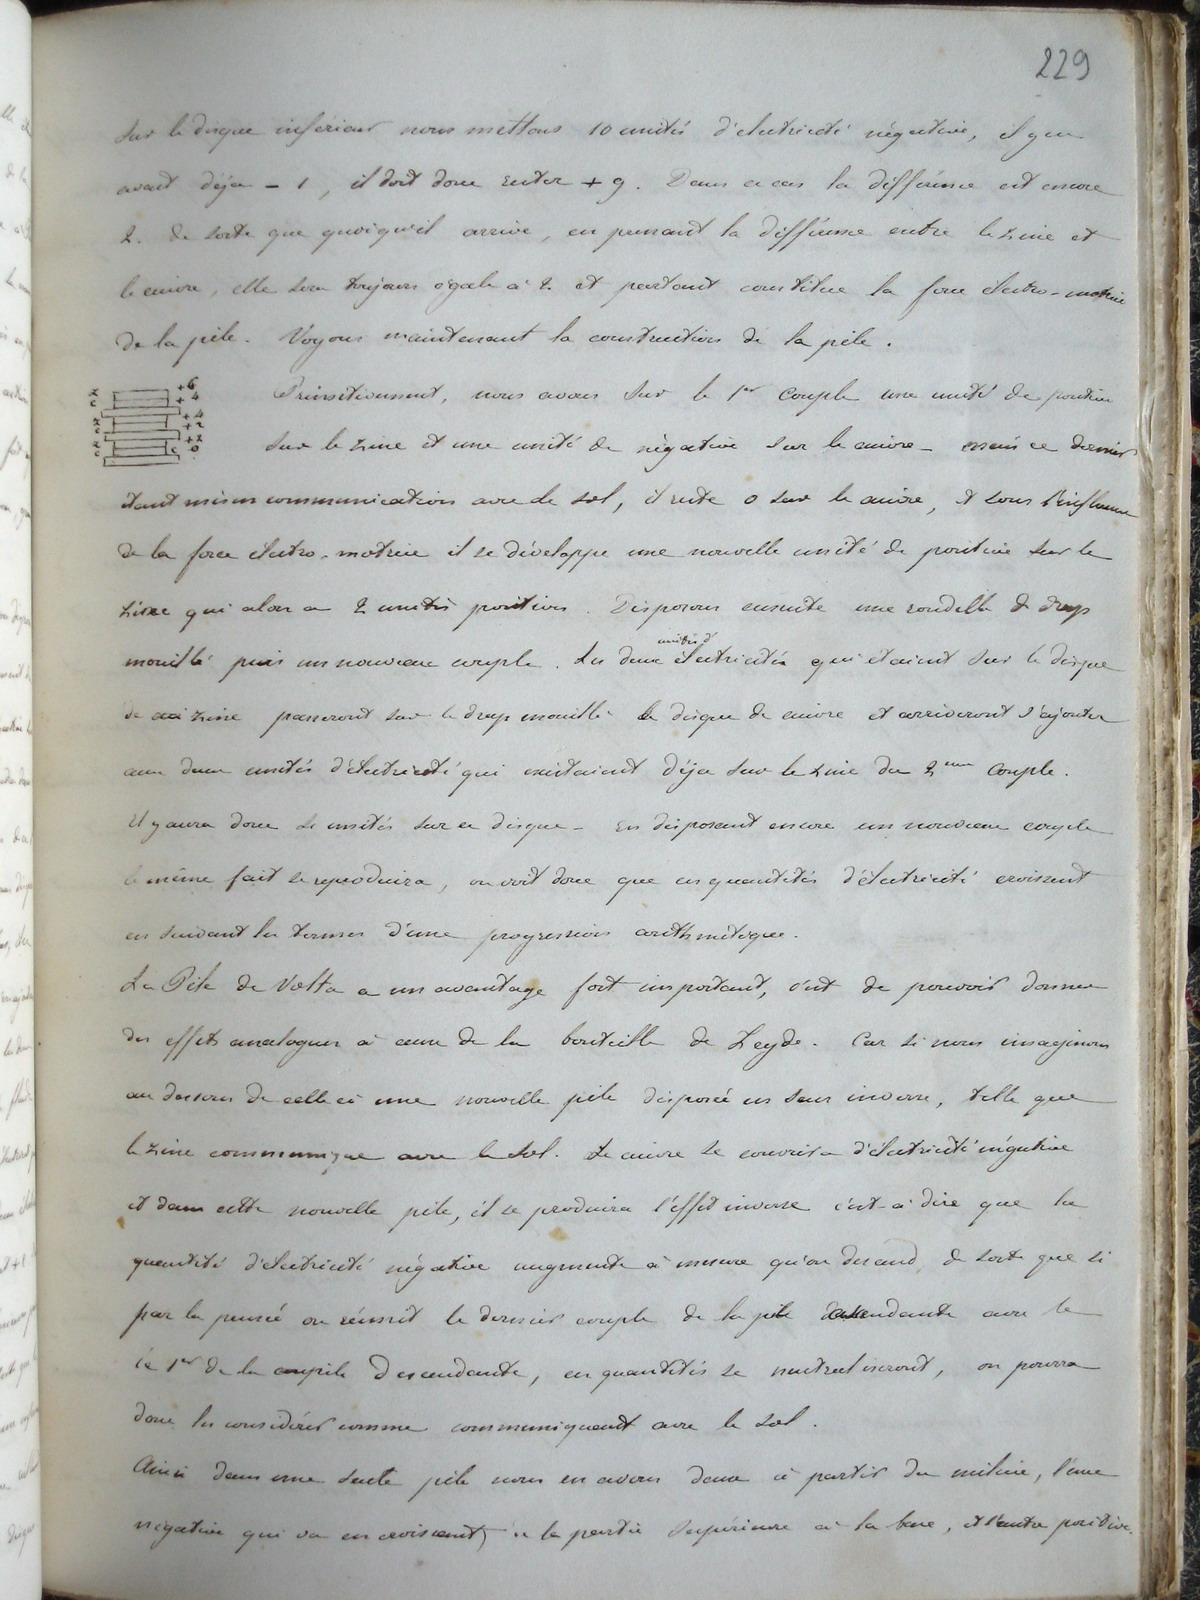 229
Sur le disque inférieur nous mettons 10 unités d'électricité négative, il y en
avait déja - 1, il doit donc rester + 9. Dans ce cas la différence est encore
2. de sorte que quoiqu'il arrive, en prenant la différence entre le zinc et
le cuivre, elle sera toujours égale à 2 et partant constitue la force électro-motrice
de la pile. Voyons maintenant la construction de la pile.
Z +6
C +4
Z +4
C +2
Z +2
C c 0
Primitivement, nous avons sur le 1er couple une unité de positive
sur le zinc et une unité de négative sur le cuivre - mais ce dernier
étant mis en communication avec le sol, il reste 0 sur le cuivre, et sous l'influence
de la force électro-motrice il se développe une nouvelle unité de positive sur le
zinc qui alors a 2 unités positives. Disposons ensuite une rondelle de drap
mouillé puis un nouveau couple. Les deux unités d'électricités qui étaient sur le disque
de zinc passeront sur le drap mouillé le disque de cuivre et arriveront s'ajouter
aux deux unités d'électricité qui existaient déja sur le zinc du 2eme couple.
Il y aura donc unités sur ce disque - En disposant encore un nouveau couple
le même fait se reproduira, on voit donc que ces quantités d'électricité croissent
en suivant les termes d'une progression arithmétique.
La Pile de Volta a un avantage fort important, c'est de pouvoir donner
des effets analogues à ceux de la bouteille de Leyde. Car si nous imaginons
au dessous de celle ci une nouvelle pile disposée en sens inverse, telle que
le zinc communique avec le sol. Le cuivre se couvrira d'électricité négative
et dans cette nouvelle pile, il se produira l'effet inverse c'est-à-dire que la
quantité d'électricité négative augmente à mesure qu'on descend, de sorte que si
par la pensée on réunit le dernier couple de la pile ascendante avec le
le 1er de la pile Descendante, ces quantités se neutraliseront, on pourra
donc les considérer comme communiquant avec le sol.
Ainsi dans une seule pile nous en avons deux à partir du milieu, l'une
négative qui va en croissant, de la partie supérieure à la base, et l'autre positive.